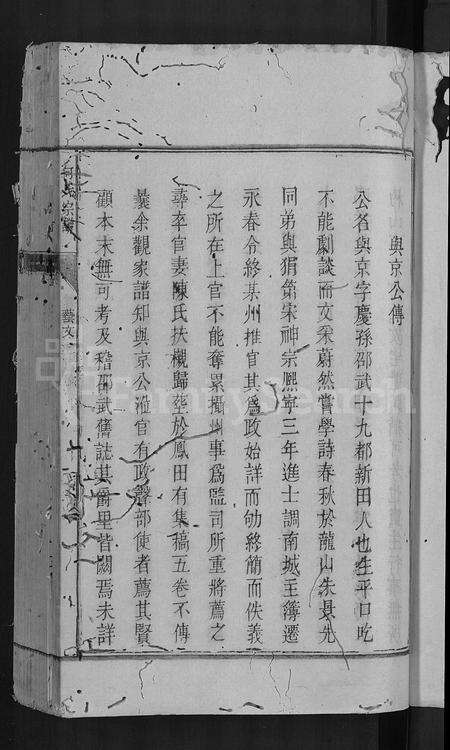 與京公傳
公名與京字慶孫邵武十九都新田人也生平口吃
不能劇談而文采蔚然嘗學詩春秋於龍山朱景先
同弟與狷第宋神宗熙寧三年進士調南城主簿遷
永春令終某州推官其為政始詳而劬終簡而佚義
之所在上官不能奪累攝州事為監司所重將薦之
尋卒官妻陳氏扶櫬歸塟於鳳田有集稿五卷不傳
曩余觀家譜知與京公涖官有政聲部使者薦其賢
顧本末無可考及稽邵武舊誌其爵里皆闕焉未詳
宗譜
藝文